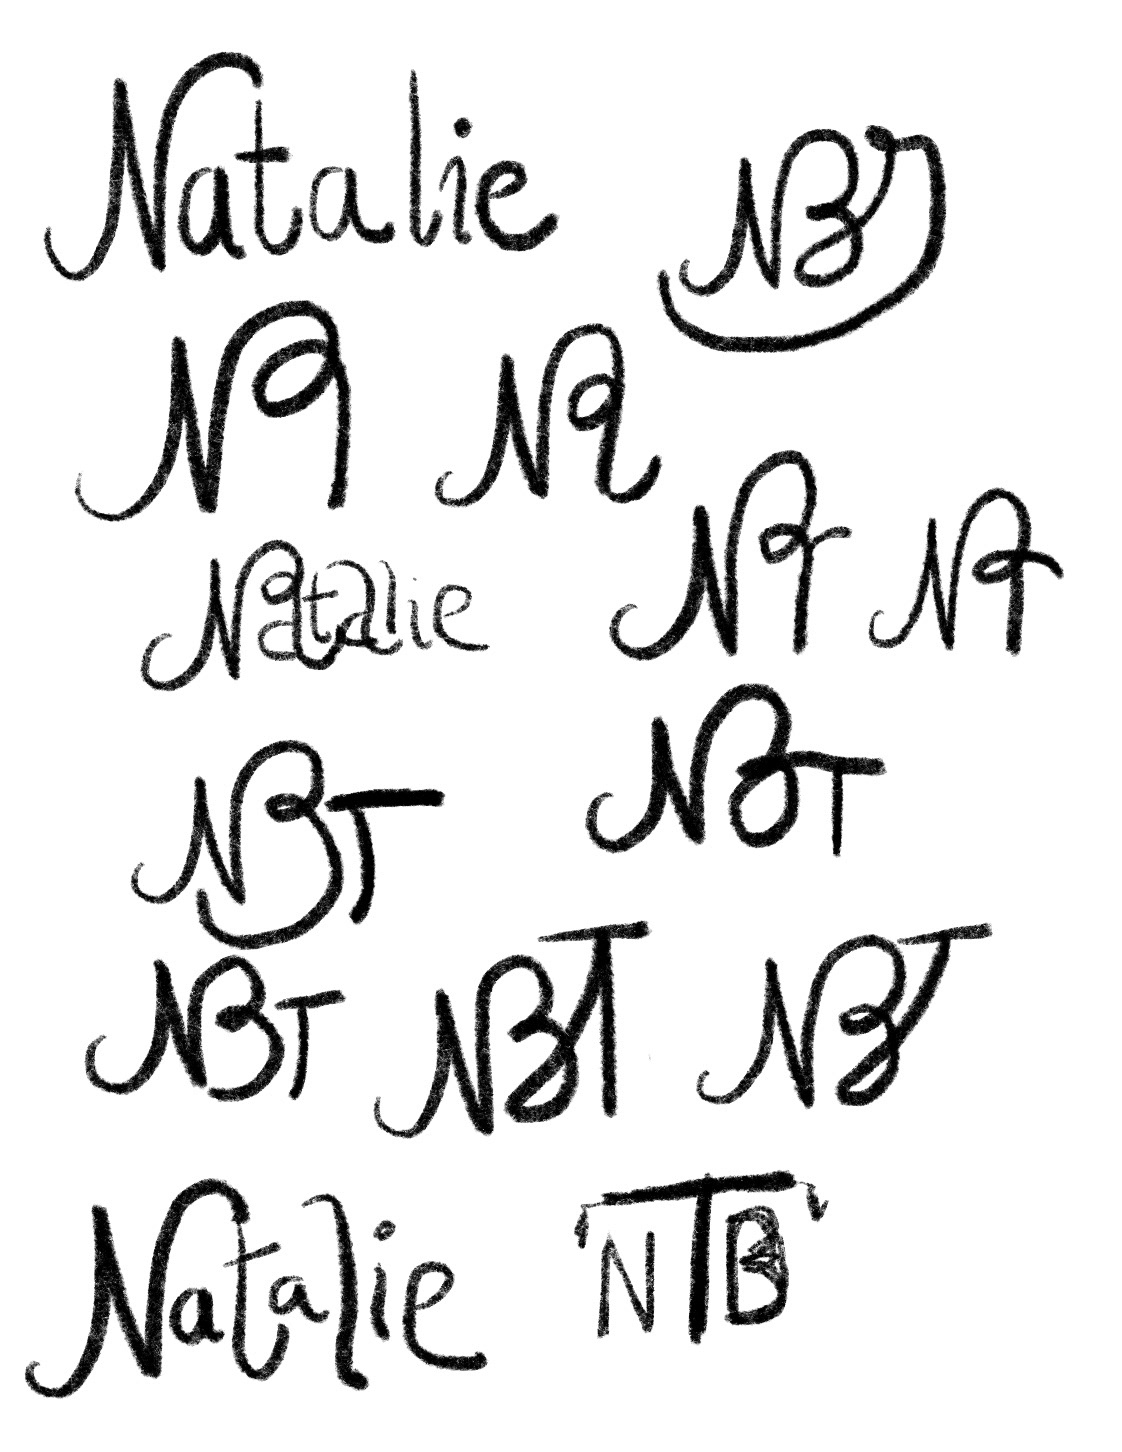 Natalie
NBT
Na Na
Natalie
NBT NBT
NBT NBT NBT
Natalie NTB